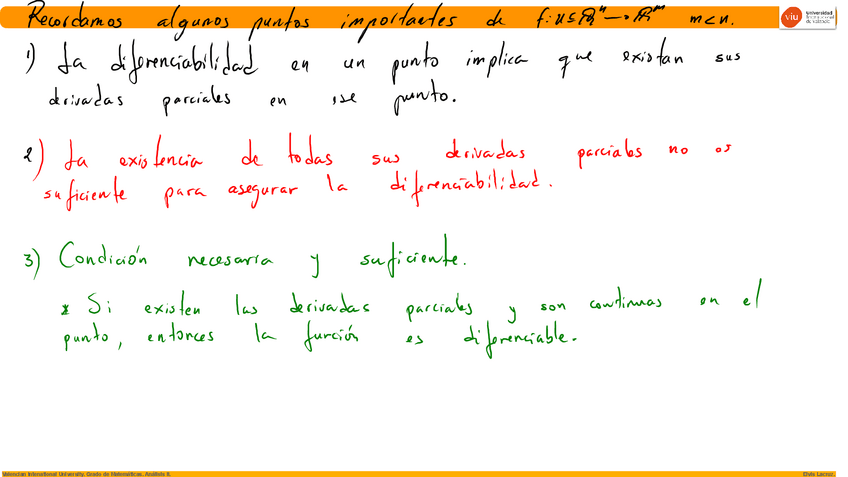 Recordamos algunos puntos importantes de f: U ⊆ ℝⁿ → ℝᵐ m<n.
viu Universidad Internacional de Valencia
1) La diferenciabilidad en un punto implica que existan sus
derivadas parciales en ese punto.
2) La existencia de todas sus derivadas parciales no es
suficiente para asegurar la diferenciabilidad.
3) Condición necesaria y suficiente.
* Si existen las derivadas parciales y son continuas en el
punto, entonces la función es diferenciable.
Valencian International University. Grado de Matemáticas. Análisis II.
Elvis Lacruz.